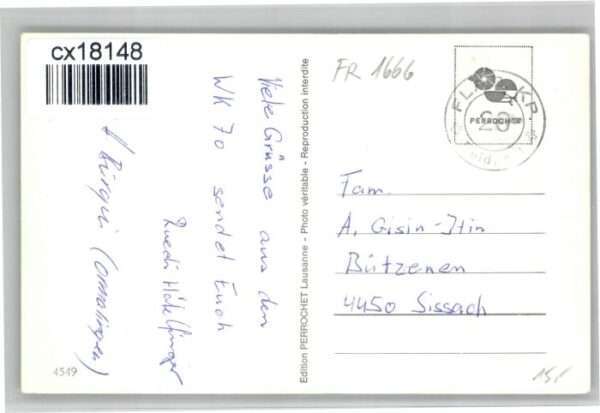 cx18148
Viele Grüsse aus dem
WK 70 sendet Euch
Ruedi Häfelfinger
Bürgin (Ormalingen)
4549
Edition PERROCHET Lausanne - Photo véritable - Reproduction interdite
FR 1666
PERROCHET
FL KP
20
Fam.
A. Gisin-Itin
Bützenen
4450 Sissach
15/